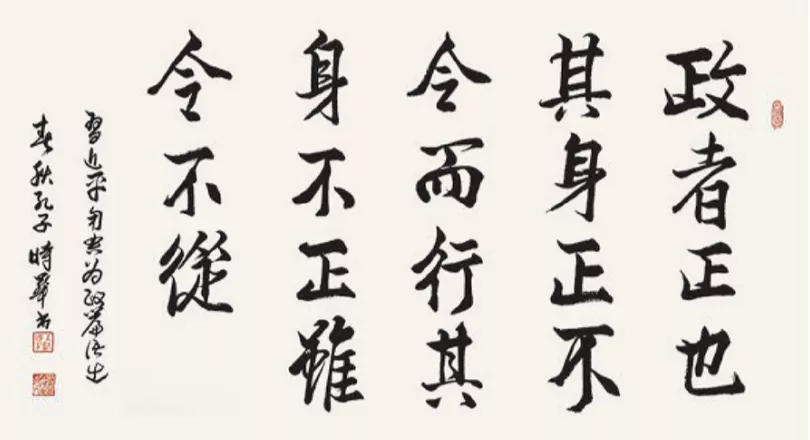 政者正也
其身正不
令而行其
身不正雖
令不從
習近平用典为政篇语出
春秋孔子時華书